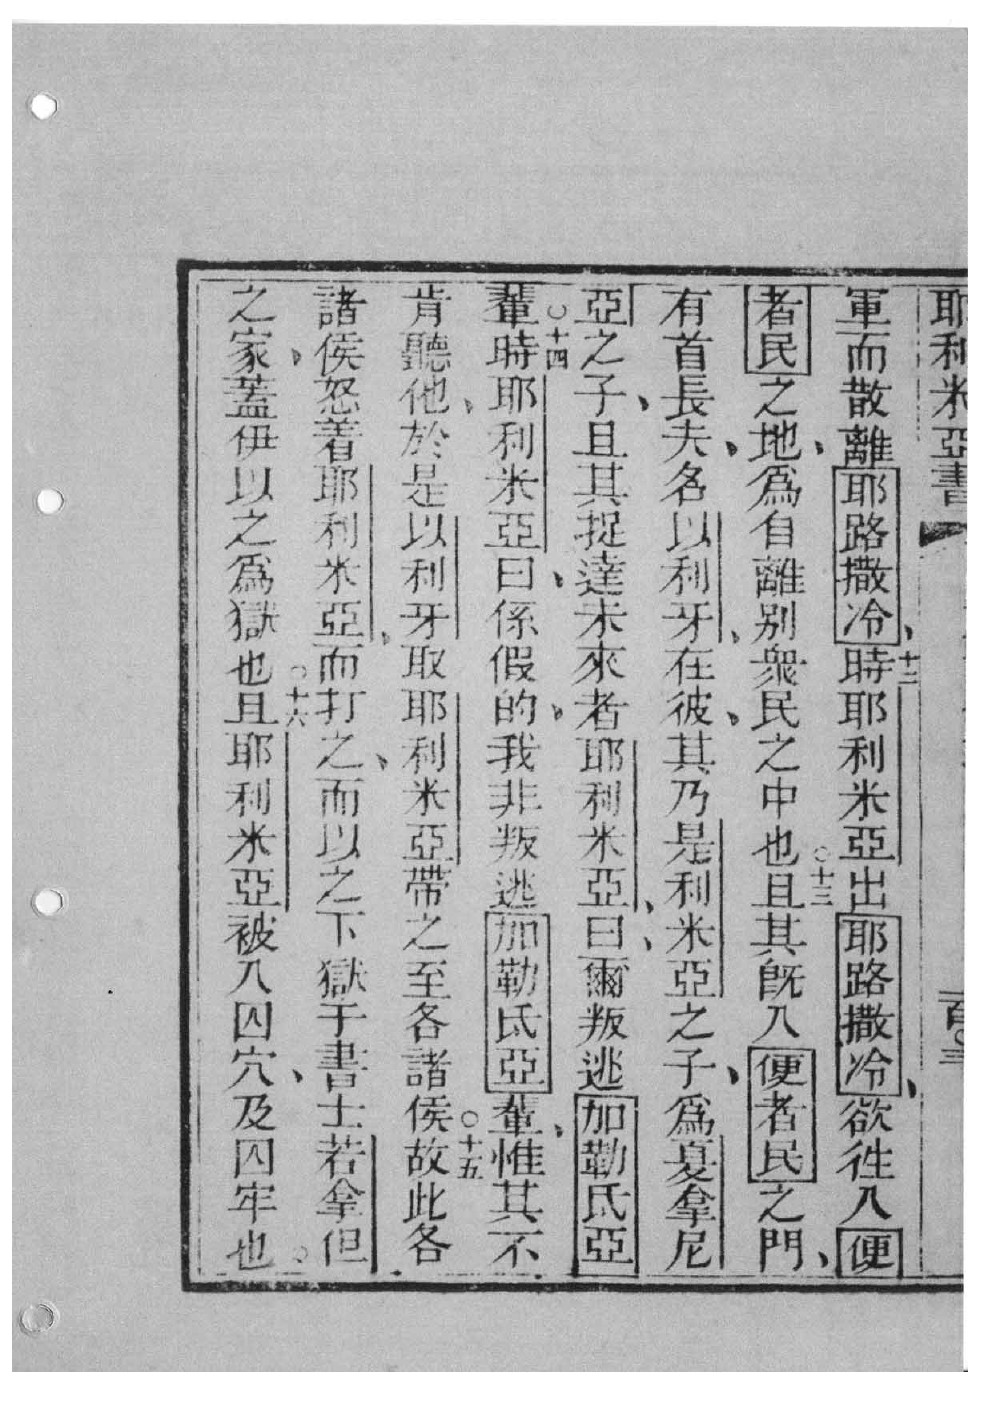 耶利米亞書
百〇三
軍而散離耶路撒冷、十二時耶利米亞出耶路撒冷、欲徃入便
者民之地、爲自離別衆民之中也○十三且其旣入便者民之門、
有首長夫、名以利牙、在彼、其乃是利米亞之子、爲夏拿尼
亞之子、且其捉達未來者耶利米亞、曰、爾叛逃加勒氐亞
輩○十四時耶利米亞曰、係假的、我非叛逃加勒氐亞輩、惟其不
肯聽他、於是以利牙取耶利米亞帶之至各諸侯○十五故此各
諸侯怒着耶利米亞、而打之、而以之下獄于書士若拿但
之家、蓋伊以之爲獄也○十六且耶利米亞被入囚穴、及囚牢也○